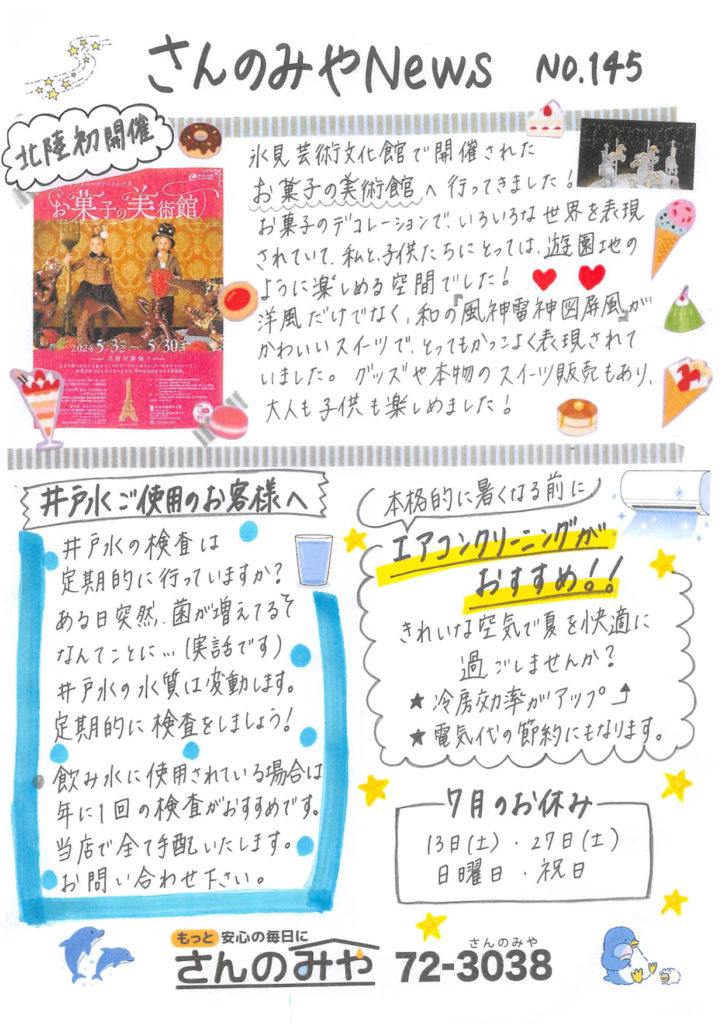 さんのみやNews NO.145
北陸初開催
お菓子の美術館
2024 5/3 5/30
氷見芸術文化館で開催された
お菓子の美術館へ行ってきました!
お菓子のデコレーションで、いろいろな世界を表現
されていて、私と、子供たちにとっては、遊園地の
ように楽しめる空間でした!
洋風だけでなく、和の『風神雷神図屏風』が
かわいいスイーツで、とってもかっこよく表現されて
いました。グッズや本物のスイーツ販売もあり、
大人も子供も楽しめました!
井戸水ご使用のお客様へ
井戸水の検査は
定期的に行っていますか?
ある日突然、菌が増えてるぞ
なんてことに…(実話です)
井戸水の水質は変動します。
定期的に検査をしましょう!
飲み水に使用されている場合は
年に1回の検査がおすすめです。
当店で全て手配いたします。
お問い合わせ下さい。
本格的に暑くなる前に
エアコンクリーニングが
おすすめ!!
きれいな空気で夏を快適に
過ごしませんか?
★冷房効率がアップ
★電気代の節約にもなります。
7月のお休み
13日(土)・27日(土)
日曜日・祝日
もっと安心の毎日に
さんのみや
さんのみや 72-3038